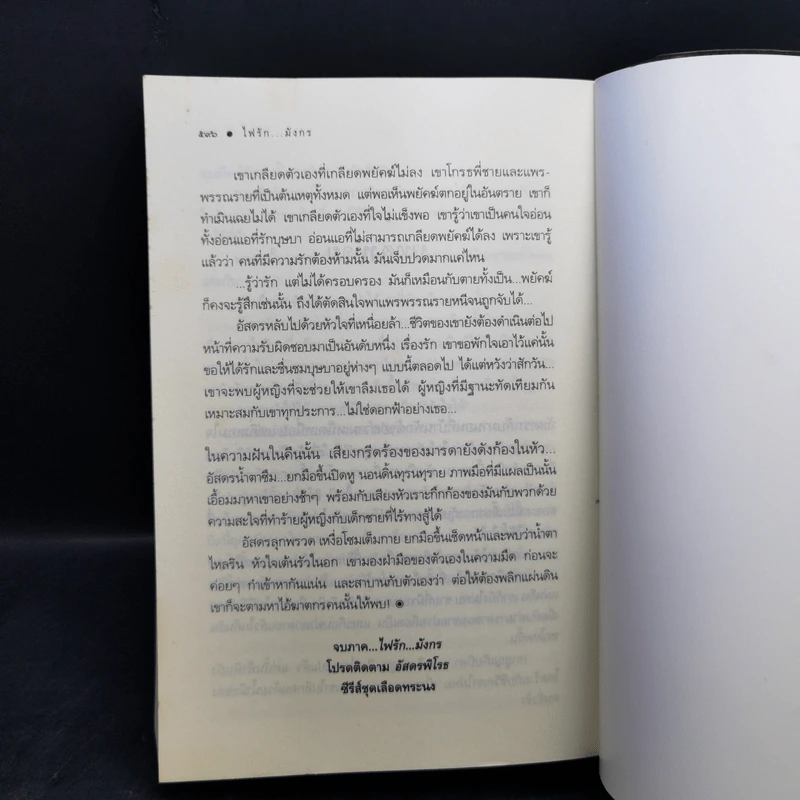 ๕๓๖ ● ไฟรัก...มังกร
เขาเกลียดตัวเองที่เกลียดพยัคฆ์ไม่ลง เขาโกรธพี่ชายและแพร-
พรรณรายที่เป็นต้นเหตุทั้งหมด แต่พอเห็นพยัคฆ์ตกอยู่ในอันตราย เขาก็
ทำเมินเฉยไม่ได้ เขาเกลียดตัวเองที่ใจไม่แข็งพอ เขารู้ว่าเขาเป็นคนใจอ่อน
ทั้งอ่อนแอที่รักบุษบา อ่อนแอที่ไม่สามารถเกลียดพยัคฆ์ได้ลง เพราะเขารู้
แล้วว่า คนที่มีความรักต้องห้ามนั้น มันเจ็บปวดมากแค่ไหน
...รู้ว่ารัก แต่ไม่ได้ครอบครอง มันก็เหมือนกับตายทั้งเป็น...พยัคฆ์
ก็คงจะรู้สึกเช่นนั้น ถึงได้ตัดสินใจพาแพรพรรณรายหนีจนถูกจับได้...
อัสดรหลับไปด้วยหัวใจที่เหนื่อยล้า...ชีวิตของเขายังต้องดำเนินต่อไป
หน้าที่ความรับผิดชอบมาเป็นอันดับหนึ่ง เรื่องรัก เขาขอพักใจเอาไว้แค่นั้น
ขอให้ได้รักและชื่นชมบุษบาอยู่ห่างๆ แบบนี้ตลอดไป ได้แต่หวังว่าสักวัน...
เขาจะพบผู้หญิงที่จะช่วยให้เขาลืมเธอได้ ผู้หญิงที่มีฐานะทัดเทียมกัน
เหมาะสมกับเขาทุกประการ...ไม่ใช่ดอกฟ้าอย่างเธอ...
ในความฝันในคืนนั้น เสียงกรีดร้องของมารดายังดังก้องในหัว...
อัสดรน้ำตาซึม...ยกมือขึ้นปิดหู นอนดิ้นทุรนทุราย ภาพมือที่มีแผลเป็นนั้น
เอื้อมมาหาเขาอย่างช้าๆ พร้อมกับเสียงหัวเราะกึกก้องของมันกับพวกด้วย
ความสะใจที่ทำร้ายผู้หญิงกับเด็กชายที่ไร้ทางสู้ได้
อัสดรลุกพรวด เหงื่อโซมเต็มกาย ยกมือขึ้นเช็ดหน้าและพบว่าน้ำตา
ไหลริน หัวใจเต้นรัวในอก เขามองฝ่ามือของตัวเองในความมืด ก่อนจะ
ค่อยๆ กำเข้าหากันแน่น และสาบานกับตัวเองว่า ต่อให้ต้องพลิกแผ่นดิน
เขาก็จะตามหาไอ้ฆาตกรคนนั้นให้พบ! ◉
จบภาค...ไฟรัก...มังกร
โปรดติดตาม อัสดรพิโรธ
ซีรีส์ชุดเลือดทระนง